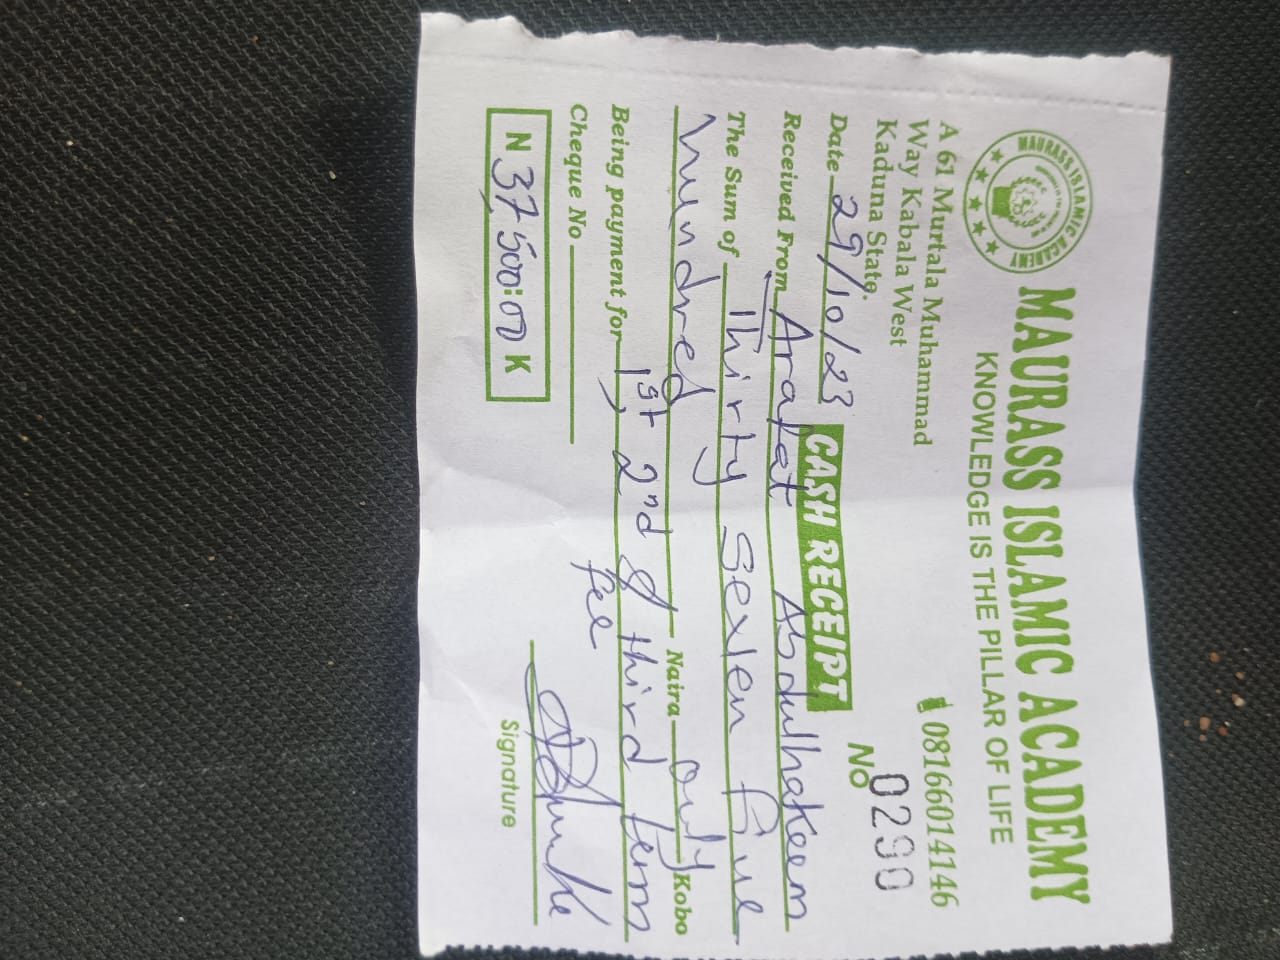 MAURASS ISLAMIC ACADEMY
KNOWLEDGE IS THE PILLAR OF LIFE
MAURASS ISLAMIC ACADEMY
A 61 Murtala Muhammad
Way Kabala West
Kaduna State.
08166014146
NO 0290
CASH RECEIPT
Date 29/10/23
Received From Arafat Abdulhakeem
The Sum of Thirty Sexlen five
hundred Naira only Kobo
Being payment for 1st, 2nd & third term
fee
Cheque No
N 37,500:00 K
Signature